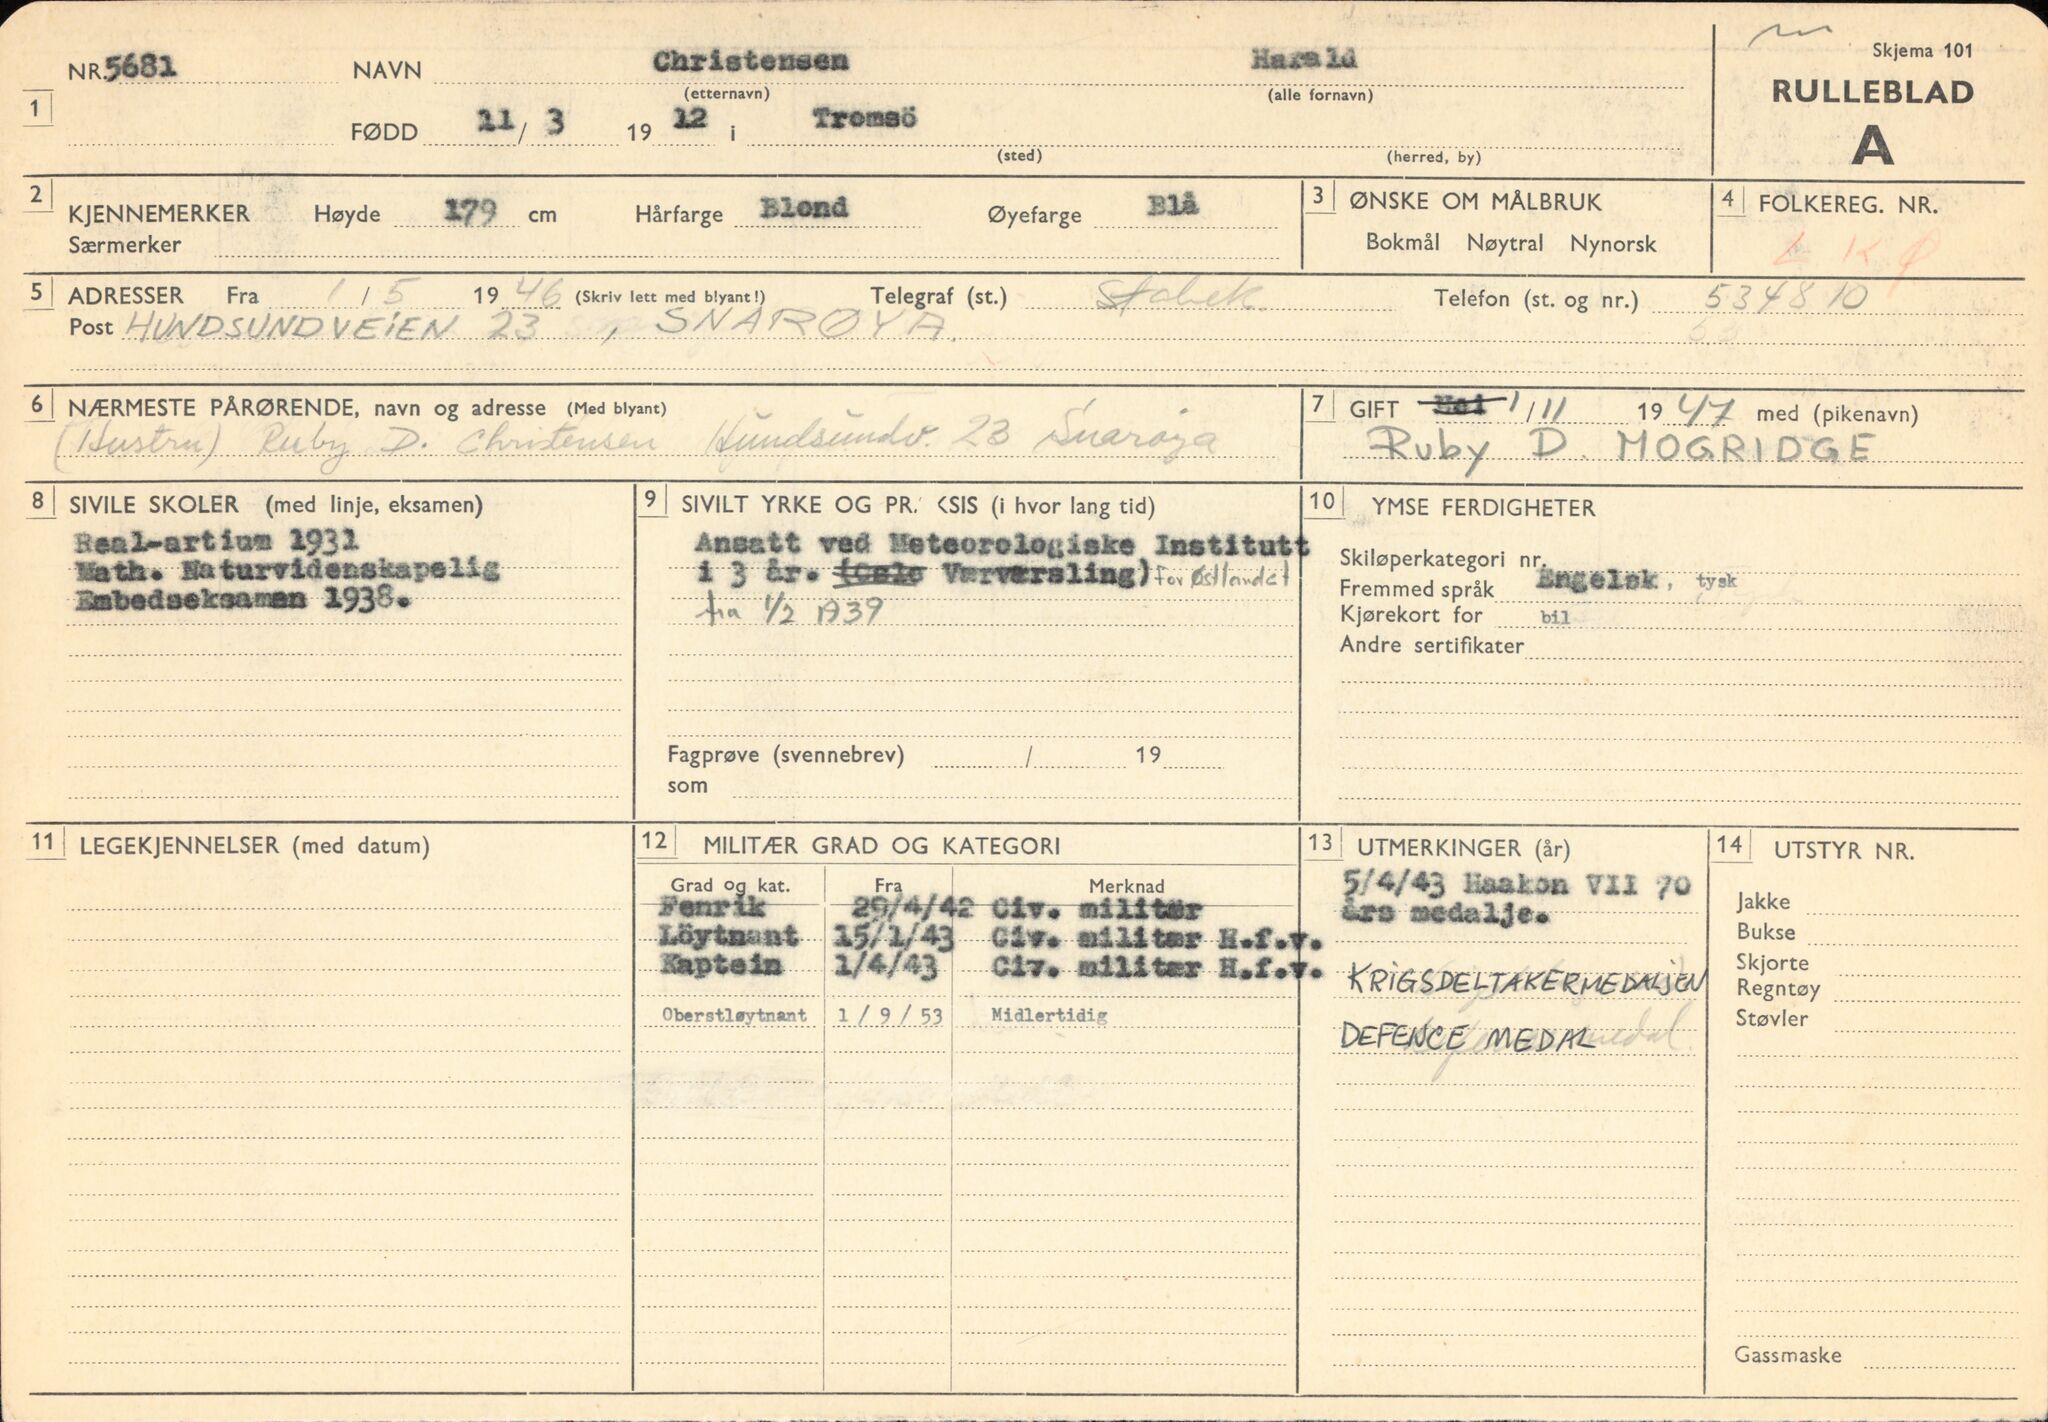 Skjema 101
RULLEBLAD
A
NR. 5681 NAVN Christensen Harald
(etternavn) (alle fornavn)
1
FØDD 11/ 3 19 12 i Tromsö
(sted) (herred, by)
2 KJENNEMERKER Høyde 179 cm Hårfarge Blond Øyefarge Blå
Særmerker
3 ØNSKE OM MÅLBRUK
Bokmål Nøytral Nynorsk
4 FOLKEREG. NR.
L K Ø
5 ADRESSER Fra 1 / 5 19 46 (Skriv lett med blyant!) Telegraf (st.) Stabek. Telefon (st. og nr.) 534810
Post HUNDSUNDVEIEN 23 , SNARØYA.
6 NÆRMESTE PÅRØRENDE, navn og adresse (Med blyant)
(Hustru) Ruby D. Christensen Hundsundv. 23 Snarøya
7 GIFT Mei 1/11 19 47 med (pikenavn)
Ruby D. MOGRIDGE
8 SIVILE SKOLER (med linje, eksamen)
Real-artium 1931
Math. Naturvidenskapelig
Embedseksamen 1938.
9 SIVILT YRKE OG PR. KSIS (i hvor lang tid)
Ansatt ved Meteorologiske Institutt
i 3 år. (Oslo Værvarsling) for Østlandet
fra 1/2 1939
Fagprøve (svennebrev) / 19
som
10 YMSE FERDIGHETER
Skiløperkategori nr.
Fremmed språk Engelsk, tysk
Kjørekort for bil
Andre sertifikater
11 LEGEKJENNELSER (med datum)
12 MILITÆR GRAD OG KATEGORI
Grad og kat. Fra Merknad
Fenrik 29/4/42 Civ. militær
Löytnant 15/1/43 Civ. militær H.f.v.
Kaptein 1/4/43 Civ. militær H.f.v.
Oberstløytnant 1 / 9 / 53 Midlertidig
13 UTMERKINGER (år)
5/4/43 Haakon VII 70
års medalje.
KRIGSDELTAKERMEDALJEN
DEFENCE MEDAL
14 UTSTYR NR.
Jakke
Bukse
Skjorte
Regntøy
Støvler
Gassmaske